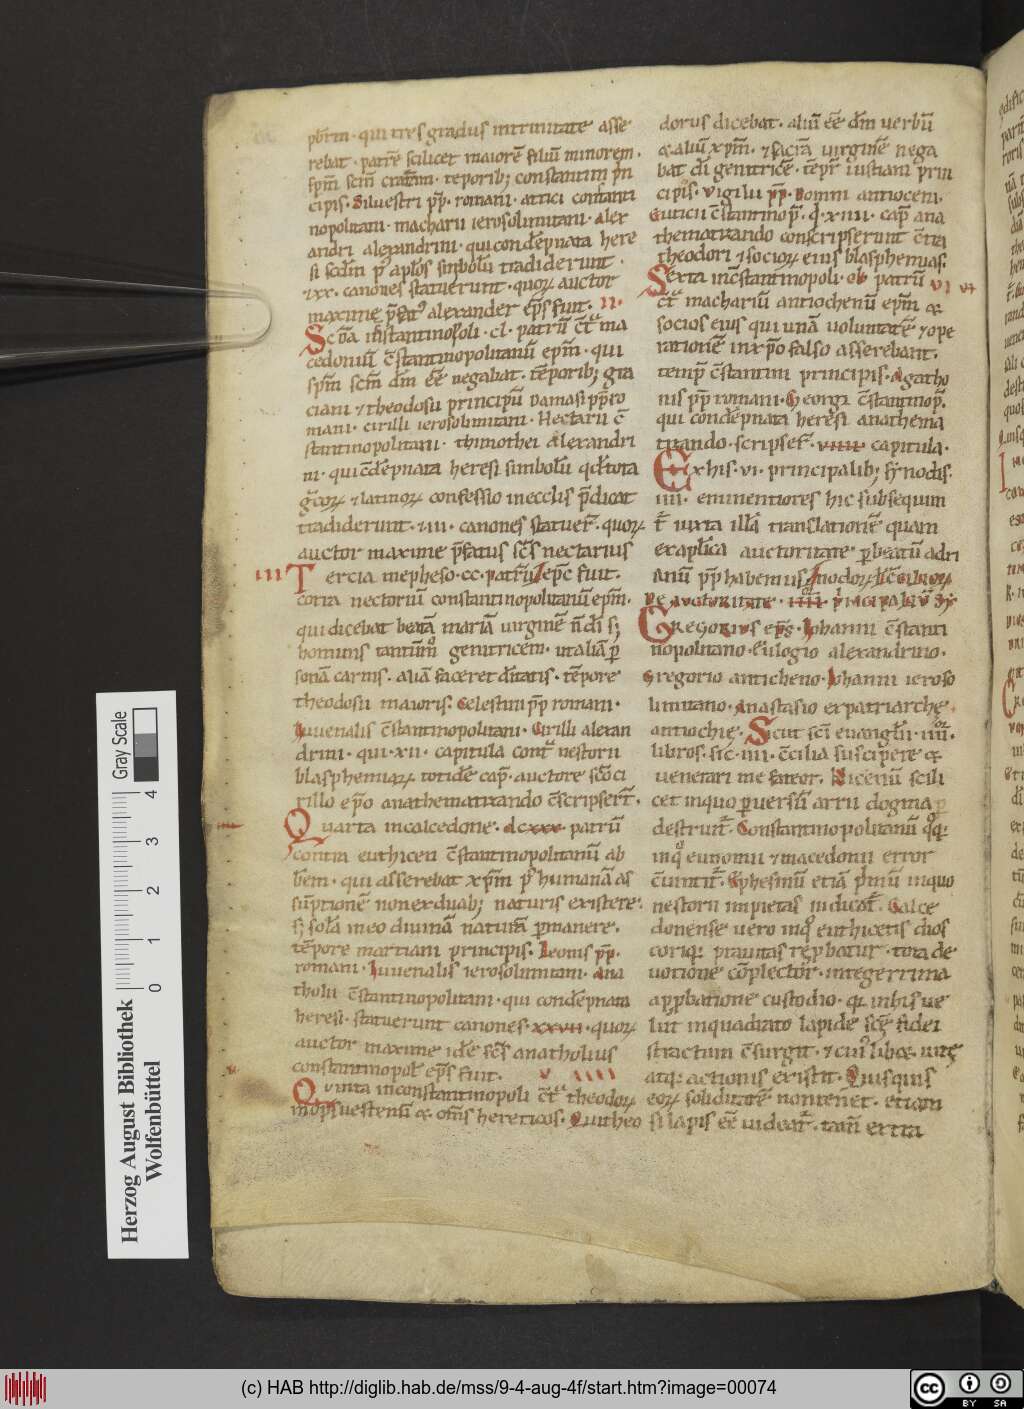 pbr̄m · qui tres gradus in trinitate asse
rebat · patrē scilicet maiorē filiū minorem ·
spm̄ scm̄ creatam · temporib; constantini prin
cipis · Siluestri pp̄ · romani · attici constanti
nopolitani · macharii ierosolimitani · Alex
andri alexandrini · qui condēpnata here
si sedm̄ pꝰ aplōs simbolū tradiderunt ·
⁊ xx · canones statuerunt · quoꝝ auctor
maxime p̄fatꝰ alexander ep̄s fuit · II·
Scd̄a in ꝯstantinopoli · cl · patrū ꝯtͣ ma
cedoniū ꝯstantinopolitanū epm̄ · qui
spm̄ scm̄ dm̄ eē negabat · tēporib; gra
ciani ⁊ theodosii principū Damasi pp̄ ro
mani · cirilli ierosolimitani · Nectarii ꝯ
stantinopolitani · thimothei Alexandri
ni · qui ꝯdēpnata heresi simbolū qd̄ tota
g̃coꝝ ⁊ latinoꝝ confessio in ecclīs p̄dicat
tradiderunt · ⁊ iii · canones statuer̄ · quoꝝ
auctor maxime p̄fatus scs̄ nectarius
III Tercia in epheso · cc · patrū Iep̄c fuit ·
cotra nectoriū constantinopolitanū epm̄ ·
qui dicebat beatā mariā uirginē n̄ di s;
hominis tantūm̊ genitricem · ut aliā ꝑ
sonā carnis · aliā faceret dītatis · tēpore
theodosii maioris · Celestini pp̄ romani ·
Iuuenalis ꝯstantinopolitani · Cirilli alexan
drini · qui · xii · capitula contͣ nestorii
blasphemiaꝝ totidē cap̄ · auctore scō ci
rillo ep̄o anathematizando ꝯscripser̄t ·
Quarta in calcedone · dcxxx · patrū
contra euthicen ꝯstantinopolitanū ab
bem · qui asserebat xpm̄ pꝰ humanā as
sūptionē non ex duab; naturis existere ·
s; solā in eo diuinā naturā ꝑmanere ·
tēpore martiani principis · Leonis pp̄ ·
romani · Iuuenalis ierosolimitani · Ana
tholii ꝯstantinopolitani · qui condēpnata
heresi · statuerunt canones · xxvii · quoꝝ
auctor maxime idē scs̄ anatholius
constantinopol̄ ep̄s fuit · V
Quinta in constantinopoli ꝯtͣ theodoꝝ
mopsuestenū ⁊ om̄s hereticos · Qui theo
dorus dicebat · aliū eē dm̄ uerbū
⁊ aliū xpm̄ · ⁊ sacrā uirginē nega
bat di genitricē · tēpr̄ iustiani prin
cipis · Vigilii pp̄ · Domni antioceni ·
Euticii ꝯstantinop̄ · q̇ · xiiii · cap̄ ana
thematizando conscripserunt ꝯtra
theodori ⁊ socioꝝ eius blasphemias ·
Sexta in ꝯstantinopoli · cl · patrū VI VI
ꝯtͣ machariū antiochenū epm̄ ⁊
socios eius qui unā uoluntatē ⁊ ope
rationē in xpō falso asserebant ·
temp̄ ꝯstantini principis · Agatho
nis pp̄ romani · Georgi ꝯstantinop̄ ·
qui condēpnata heresi anathema
tizando · scripser̄ · viiii capitula ·
Ex his · vi · principalib; synodis ·
iiii · eminentiores hic subsequun
t̄ iuxta illā translationē quam
ex aplīca auctoritate ꝑ beatū adri
anū pp̄ habemus
De auctoritate · IIII · principaliū sy
Gregorius ep̄s · Iohanni ꝯstanti
nopolitano · Eulogio alexandrino ·
Gregorio anticheno · Iohanni ieroso
limitano · Anastasio expatriarchę ·
antiochię · Sicut scī euangl̄ii · iiii ·
libros · sic · iiii · ꝯcilia suscipere ⁊
uenerari me fateor · Nicenū scili
cet in quo ꝑuersū arrii dogma
destruit̄ · Constantinopolitanū q̊q;
in q̊ eunomii ⁊ macedonii error
ꝯuincit̄ · Ephesinū etiā p̍mū in quo
nestorii impietas iudicat̄ · Calce
donense uero in q̊ euthicetis dios
coriq; prauitas rep̄batur · tota de
uotione cōplector · integerrima
app̄batione custodio · q; in his ue
lut in quadrato lapide scę fidei
structura ꝯsurgit · ⁊ cuiꝰlibet uitę
atq; actionis existit · Quisquis
eoꝝ soliditatē non tenet · etiam
si lapis eē uideat̄ · tam̄ extra
Herzog August Bibliothek
Wolfenbüttel
Gray Scale
0 1 2 3 4
(c) HAB http://diglib.hab.de/mss/9-4-aug-4f/start.htm?image=00074
cc BY SA